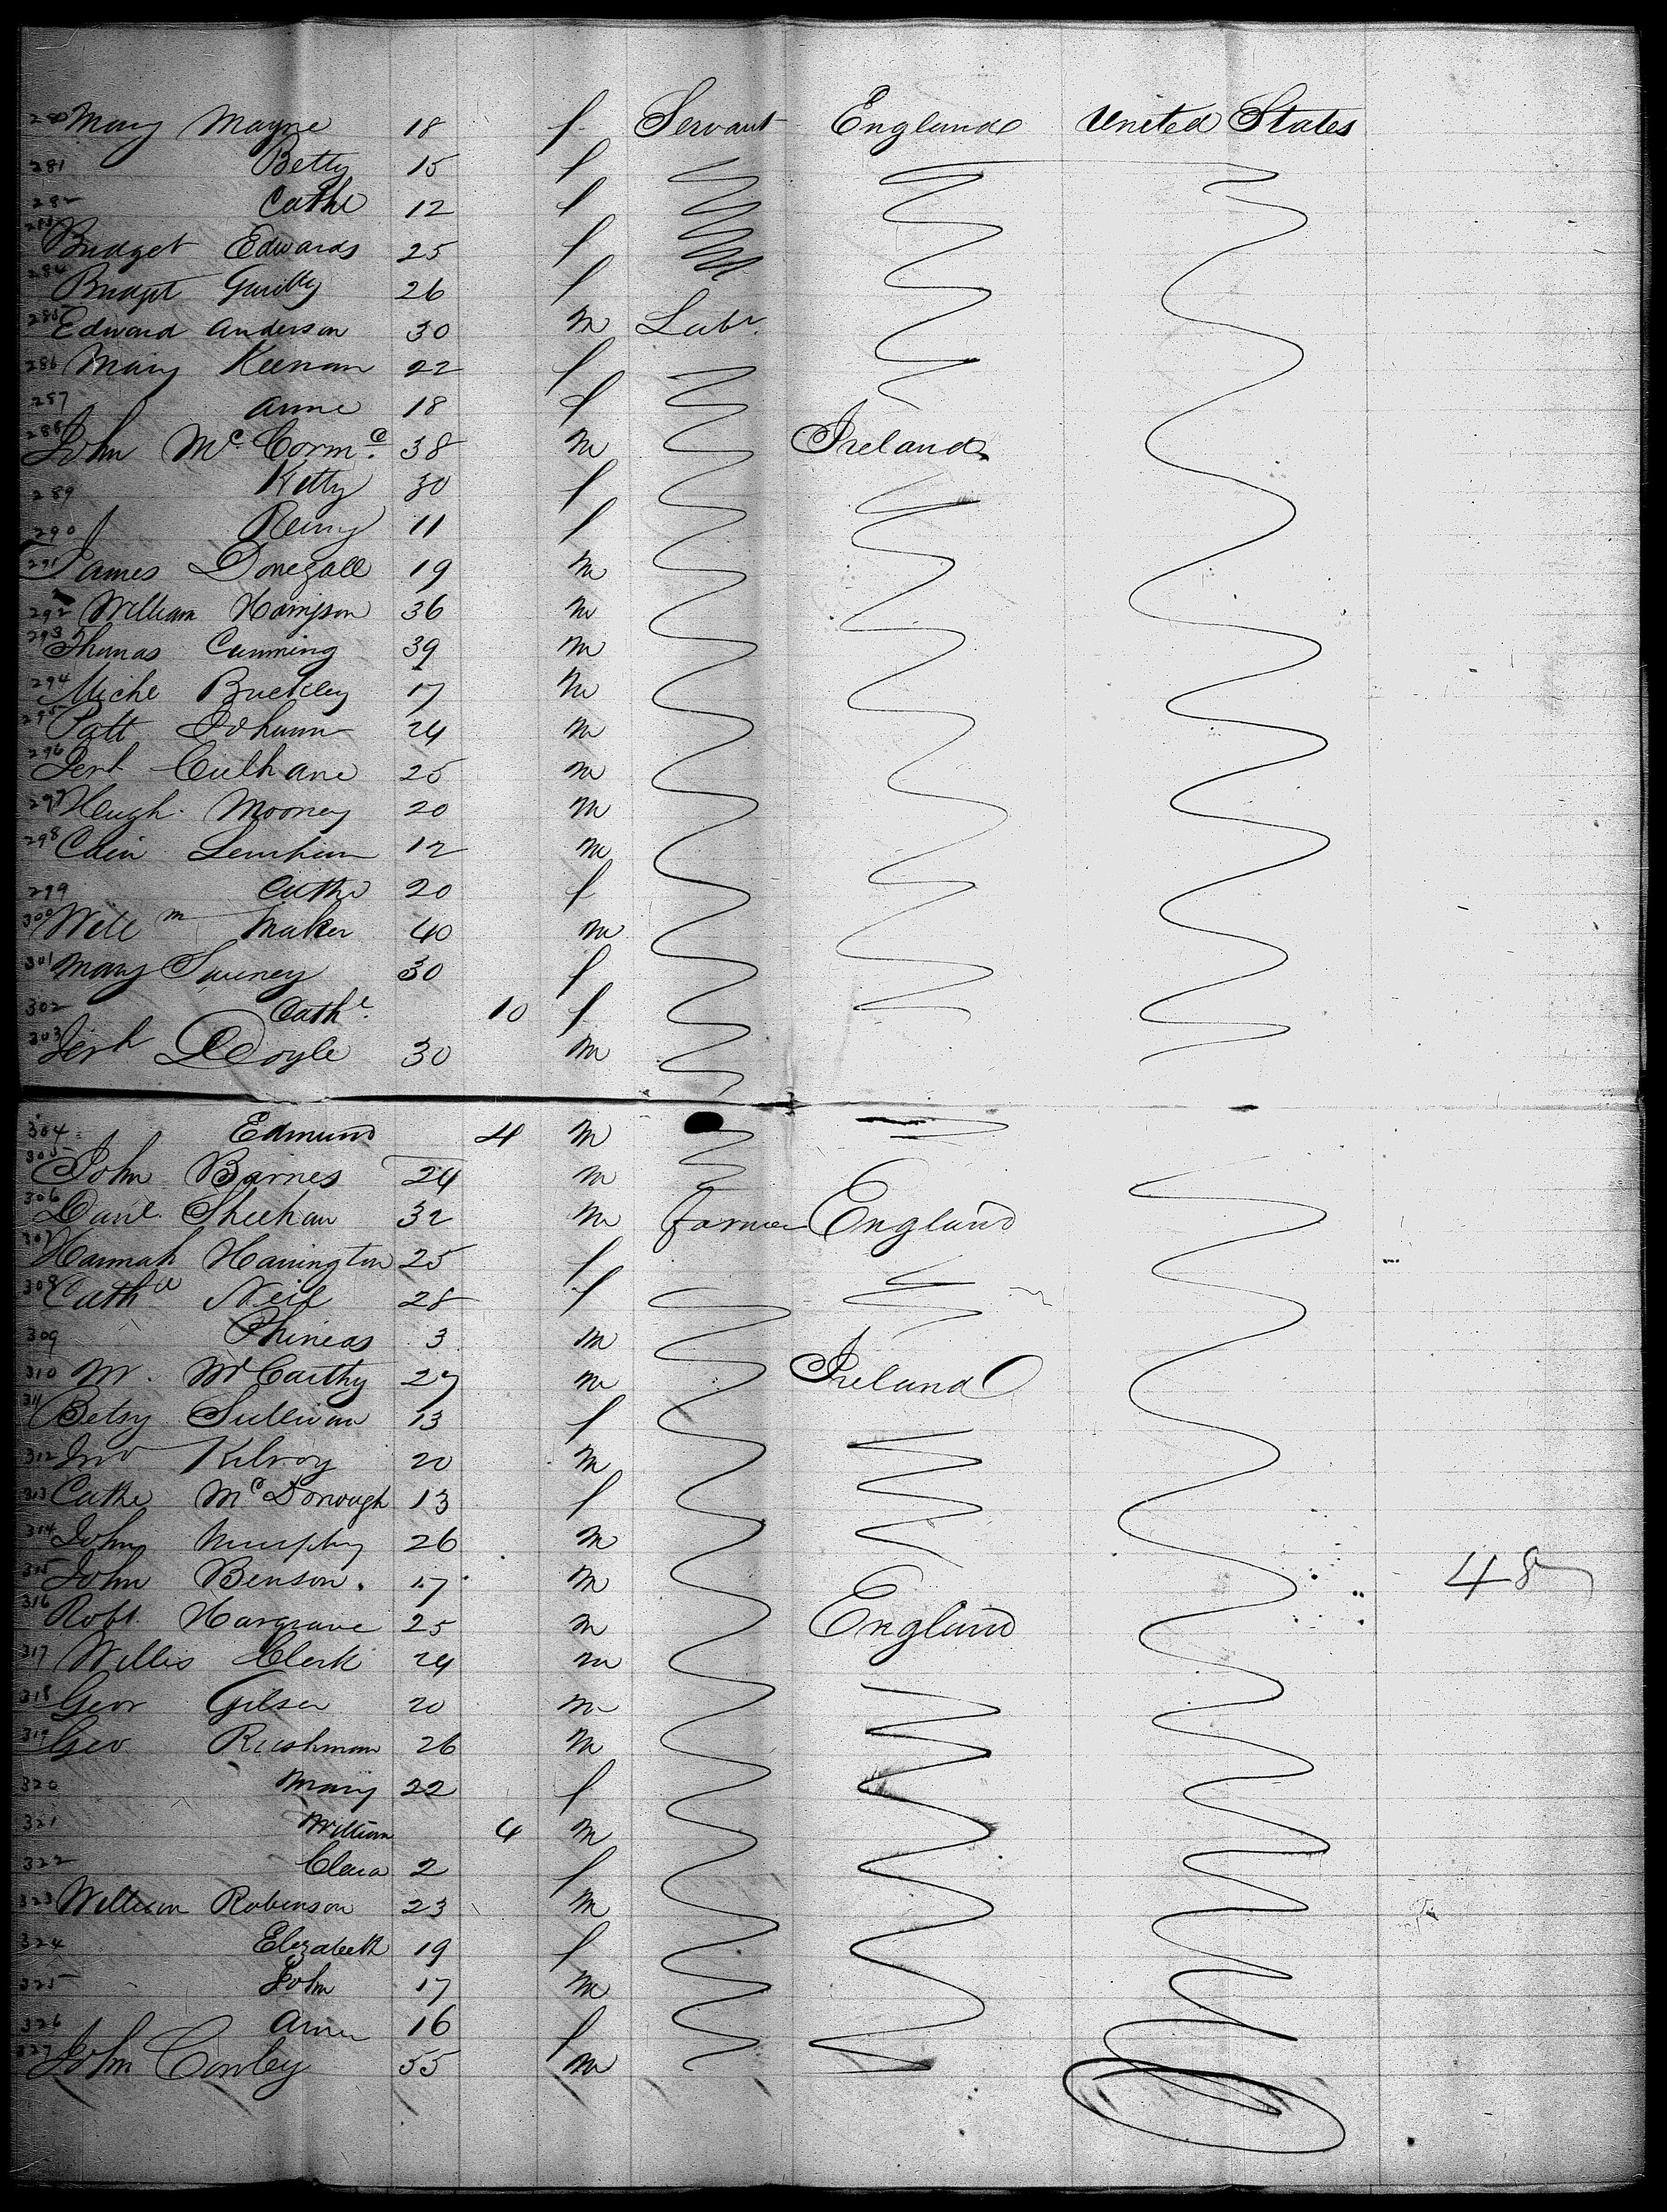 280 Mary Mayne 18 f Servant England United States
281 Betty 15 f
282 Cathe 12 f
283 Bridget Edwards 25 f
284 Bridget 26 f
285 Edward Anderson 30 m Labr.
286 Mary Keenan 22 f
287 Anne 18 f
288 John McCormc. 38 m Ireland
289 Kitty 30 f
290 11 f
291 James Donegall 19 m
292 William 36 m
293 Thomas Cumming 39 m
294 Michl Buckley 17 m
295 Patt 24 m
296 Jerh Culhane 25 m
297 Hugh Mooney 20 m
298 12 m
299 Cathe 20 f
300 Willm Maker 40 m
301 Mary 30 f
302 Cathe. 10 f
303 Jerh Doyle 30 m
304 Edmund 4 m
305 John Barnes 24 m
306 Danl. Sheehan 32 m Farmer England
307 Hannah Harrington 25 f
308 Cathe Neil 28 f
309 Phineas 3 m
310 M. McCarthy 27 m Ireland
311 Betsy Sullivan 13 f
312 Jno Kilroy 20 m
313 Cathe McDonough 13 f
314 John Murphy 26 m
315 John Benson. 17 m 48
316 Robt. Hargrave 25 m England
317 Willis Clerk 24 m
318 Geor 20 m
319 Geo Rushman 26 m
320 Mary 22 f
321 William 4 m
322 Clara 2 f
323 William Robinson 23 m
324 Elizabeth 19 f
325 John 17 m
326 16 f
327 John Conley 55 m